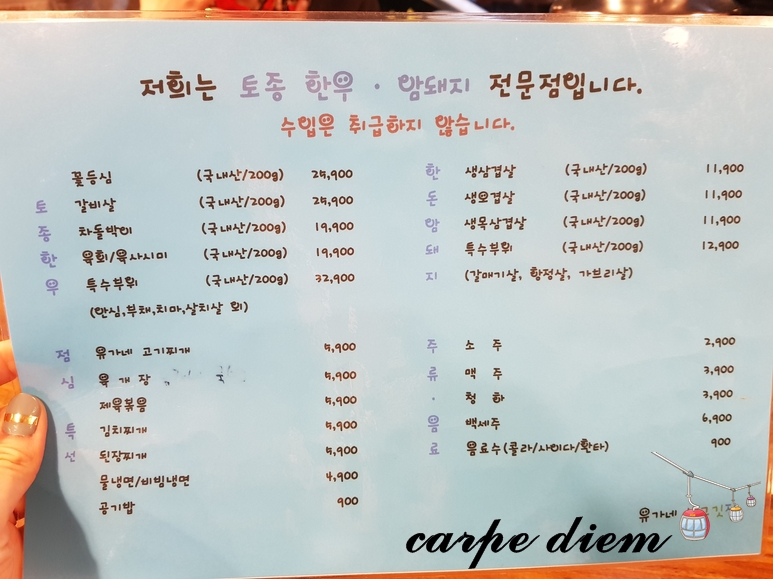 저희는 토종 한우 · 암돼지 전문점입니다.
수입은 취급하지 않습니다.
토종한우
꽃등심 (국내산/200g) 25,900
갈비살 (국내산/200g) 25,900
차돌박이 (국내산/200g) 19,900
육회/육사시미 (국내산/200g) 19,900
특수부위 (국내산/200g) 32,900
(안심,부채,치마,살치살 외)
한돈암돼지
생삼겹살 (국내산/200g) 11,900
생오겹살 (국내산/200g) 11,900
생목삼겹살 (국내산/200g) 11,900
특수부위 (국내산/200g) 12,900
(갈매기살, 항정살, 가브리살)
점심특선
유가네 고기찌개 5,900
육개장 5,900
제육볶음 5,900
김치찌개 5,900
된장찌개 5,900
물냉면/비빔냉면 4,900
공기밥 900
주류·음료
소 주 2,900
맥 주 3,900
청 하 3,900
백세주 6,900
음료수(콜라/사이다/환타) 900
유가네
carpe diem